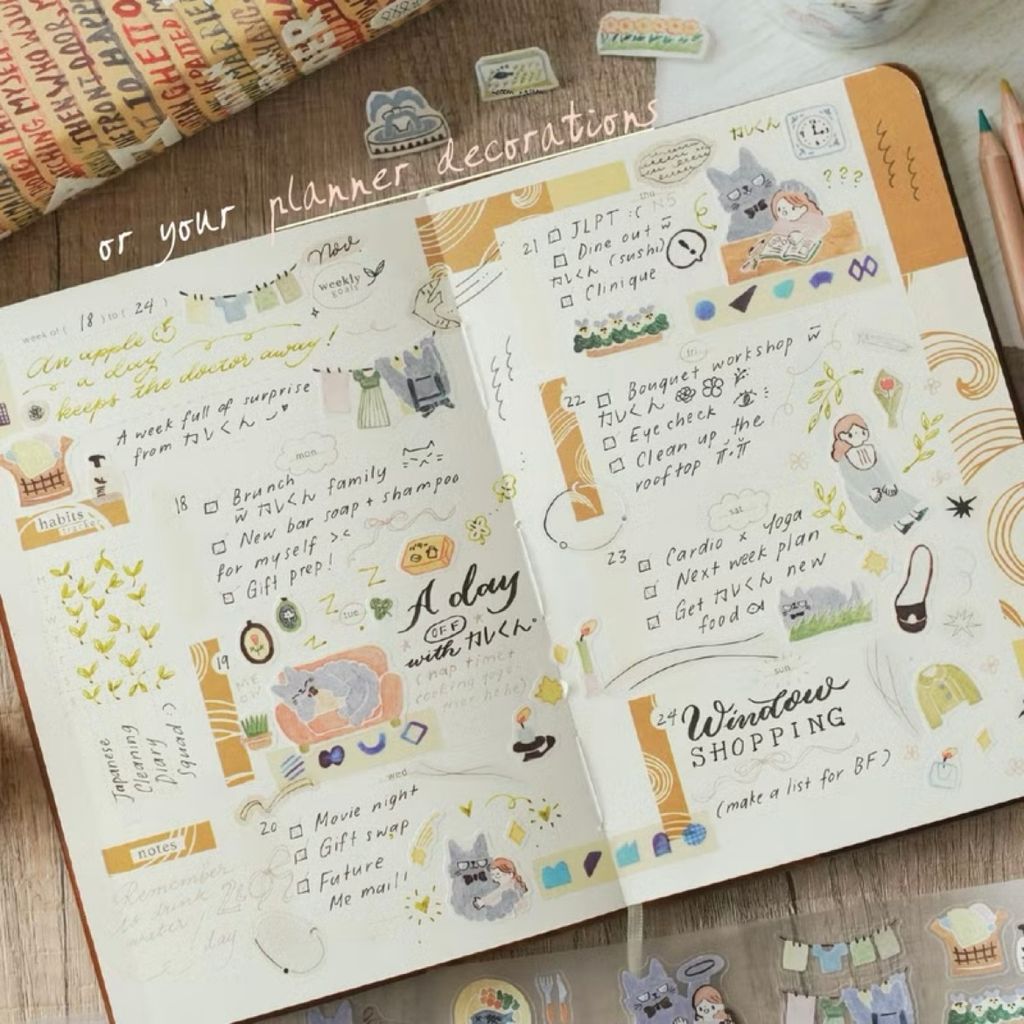 or your planner decorations
Nov.
weekly
goals
week of ( 18 ) to ( 24 )
An apple
a day
keeps the doctor away!
A week full of surprise
from カレくん
habits
tracker
mon
18 □ Brunch
w カレくん family
□ New bar soap + shampoo
for myself ><
□ Gift prep!
tue
19
A day
OFF
with カレくん
(nap time+
MEOW
Japanese
Cleaning
Diary
Squad :)
wed
20 □ Movie night
□ Gift swap
□ Future
Me mail!
notes
Remember
to drink
water!
day
カレくん
???
thu
21 □ JLPT :( N5
□ Dine out w
カレくん (sushi)
□ Clinique
fri
22 □ Bouquet workshop w
カレくん
□ Eye check
□ Clean up the
rooftop
sat
23 □ Cardio x yoga
□ Next week plan
□ Get カレくん new
food
sun
24 Window
SHOPPING
(make a list for BF)